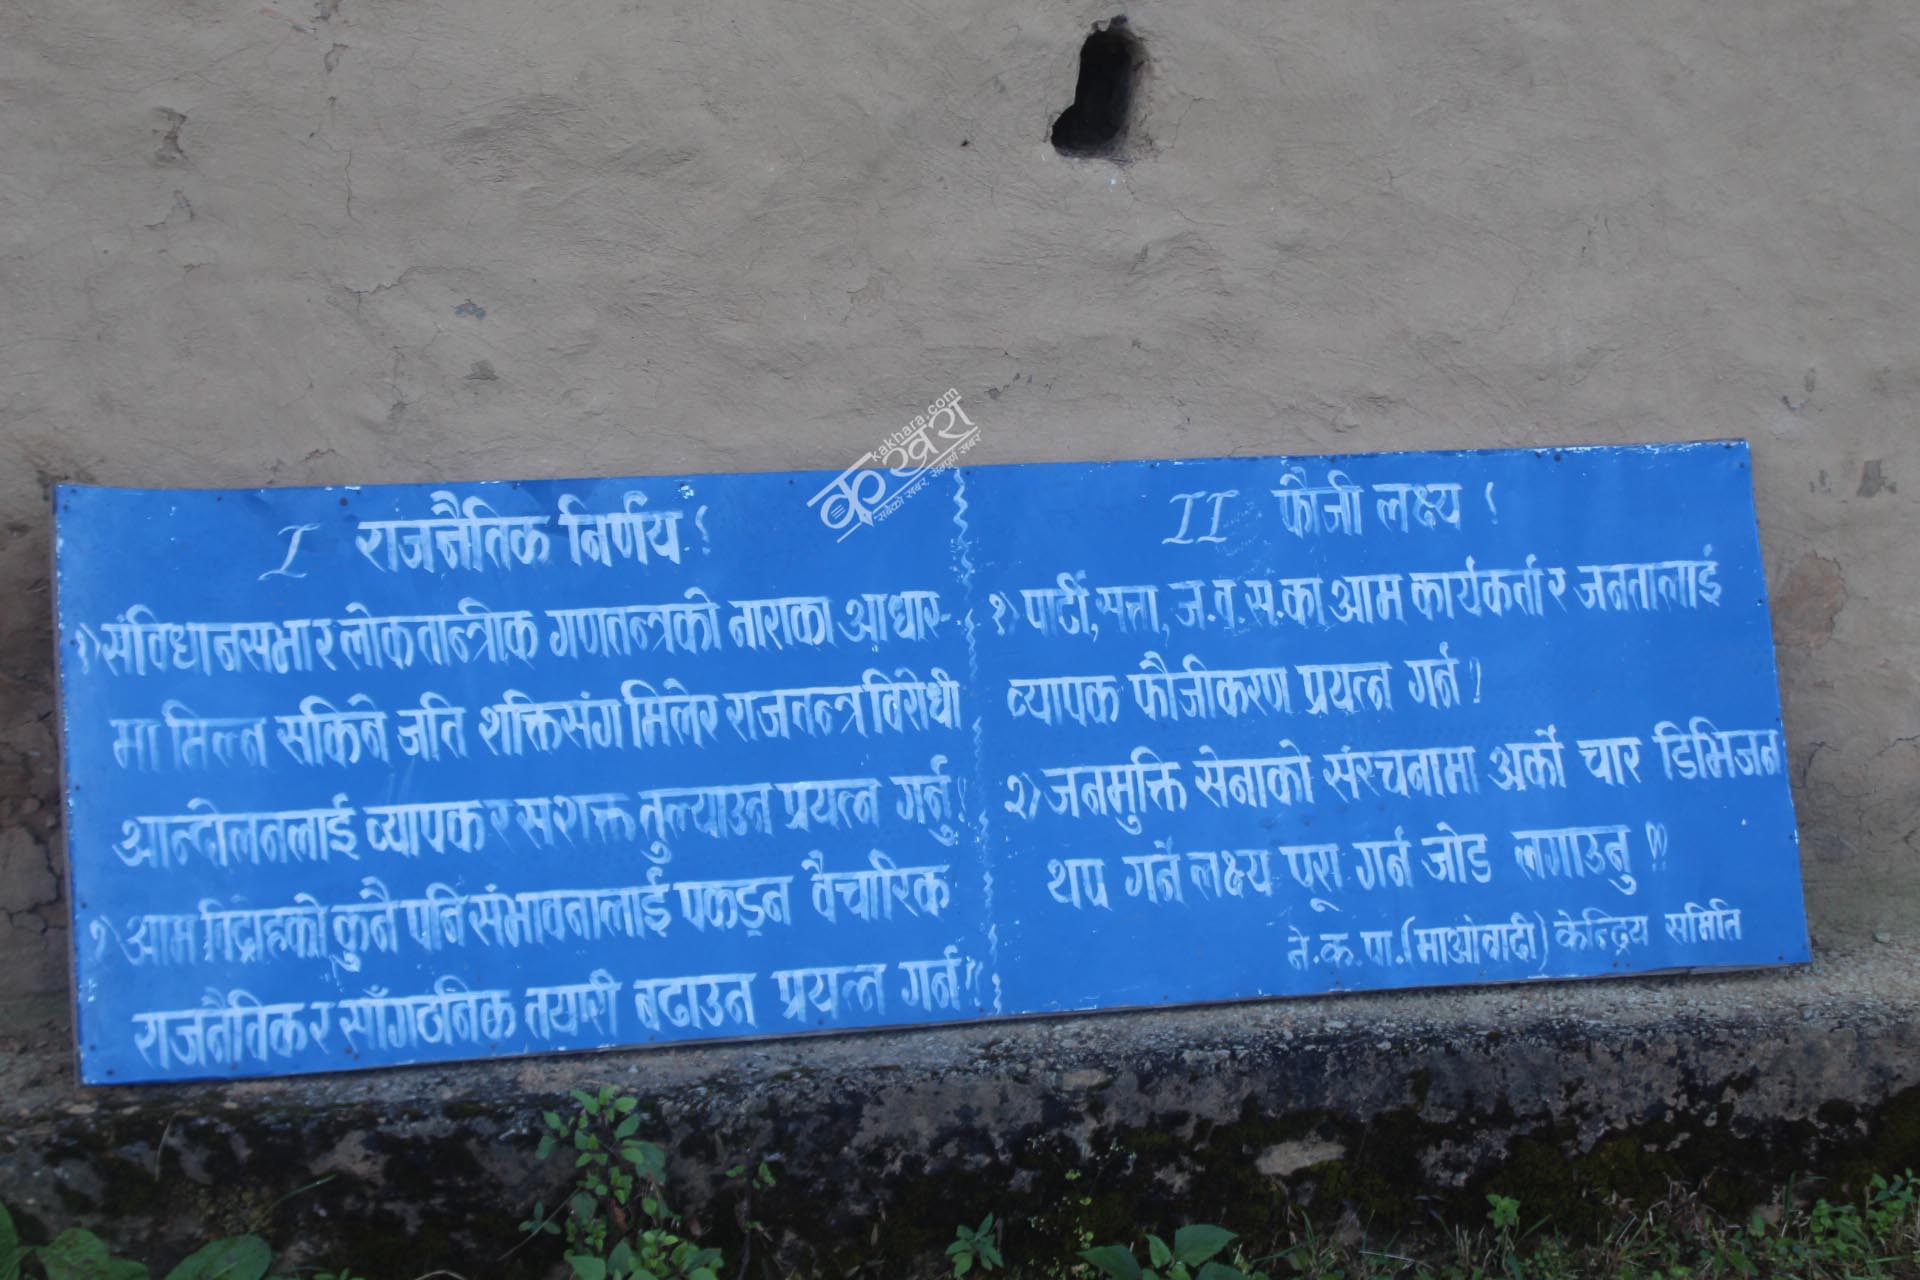 I राजनैतिक निर्णय !
१) संविधानसभा र लोकतान्त्रीक गणतन्त्रको नाराका आधार-
मा मिल्न सकिने जति शक्तिसंग मिलेर राजतन्त्र विरोधी
आन्दोलनलाई व्यापक र सशक्त तुल्याउन प्रयत्न गर्नु !
२) आम विद्रोहको कुनै पनि संभावनालाई पकड्न वैचारिक
राजनैतिक र साँगठनिक तयारी बढाउन प्रयत्न गर्न !!
II फौजी लक्ष्य !
१) पार्टी, सत्ता, ज.व.स.का आम कार्यकर्ता र जनतालाई
व्यापक फौजीकरण प्रयत्न गर्न ?
२) जनमुक्ति सेनाको संरचनामा अर्को चार डिभिजन
थप गर्ने लक्ष्य पूरा गर्न जोड लगाउनु !!
ने.क.पा.(माओवादी) केन्द्रिय समिति
kakhara.com
कखरा
सबैको खबर, सम्पूर्ण खबर